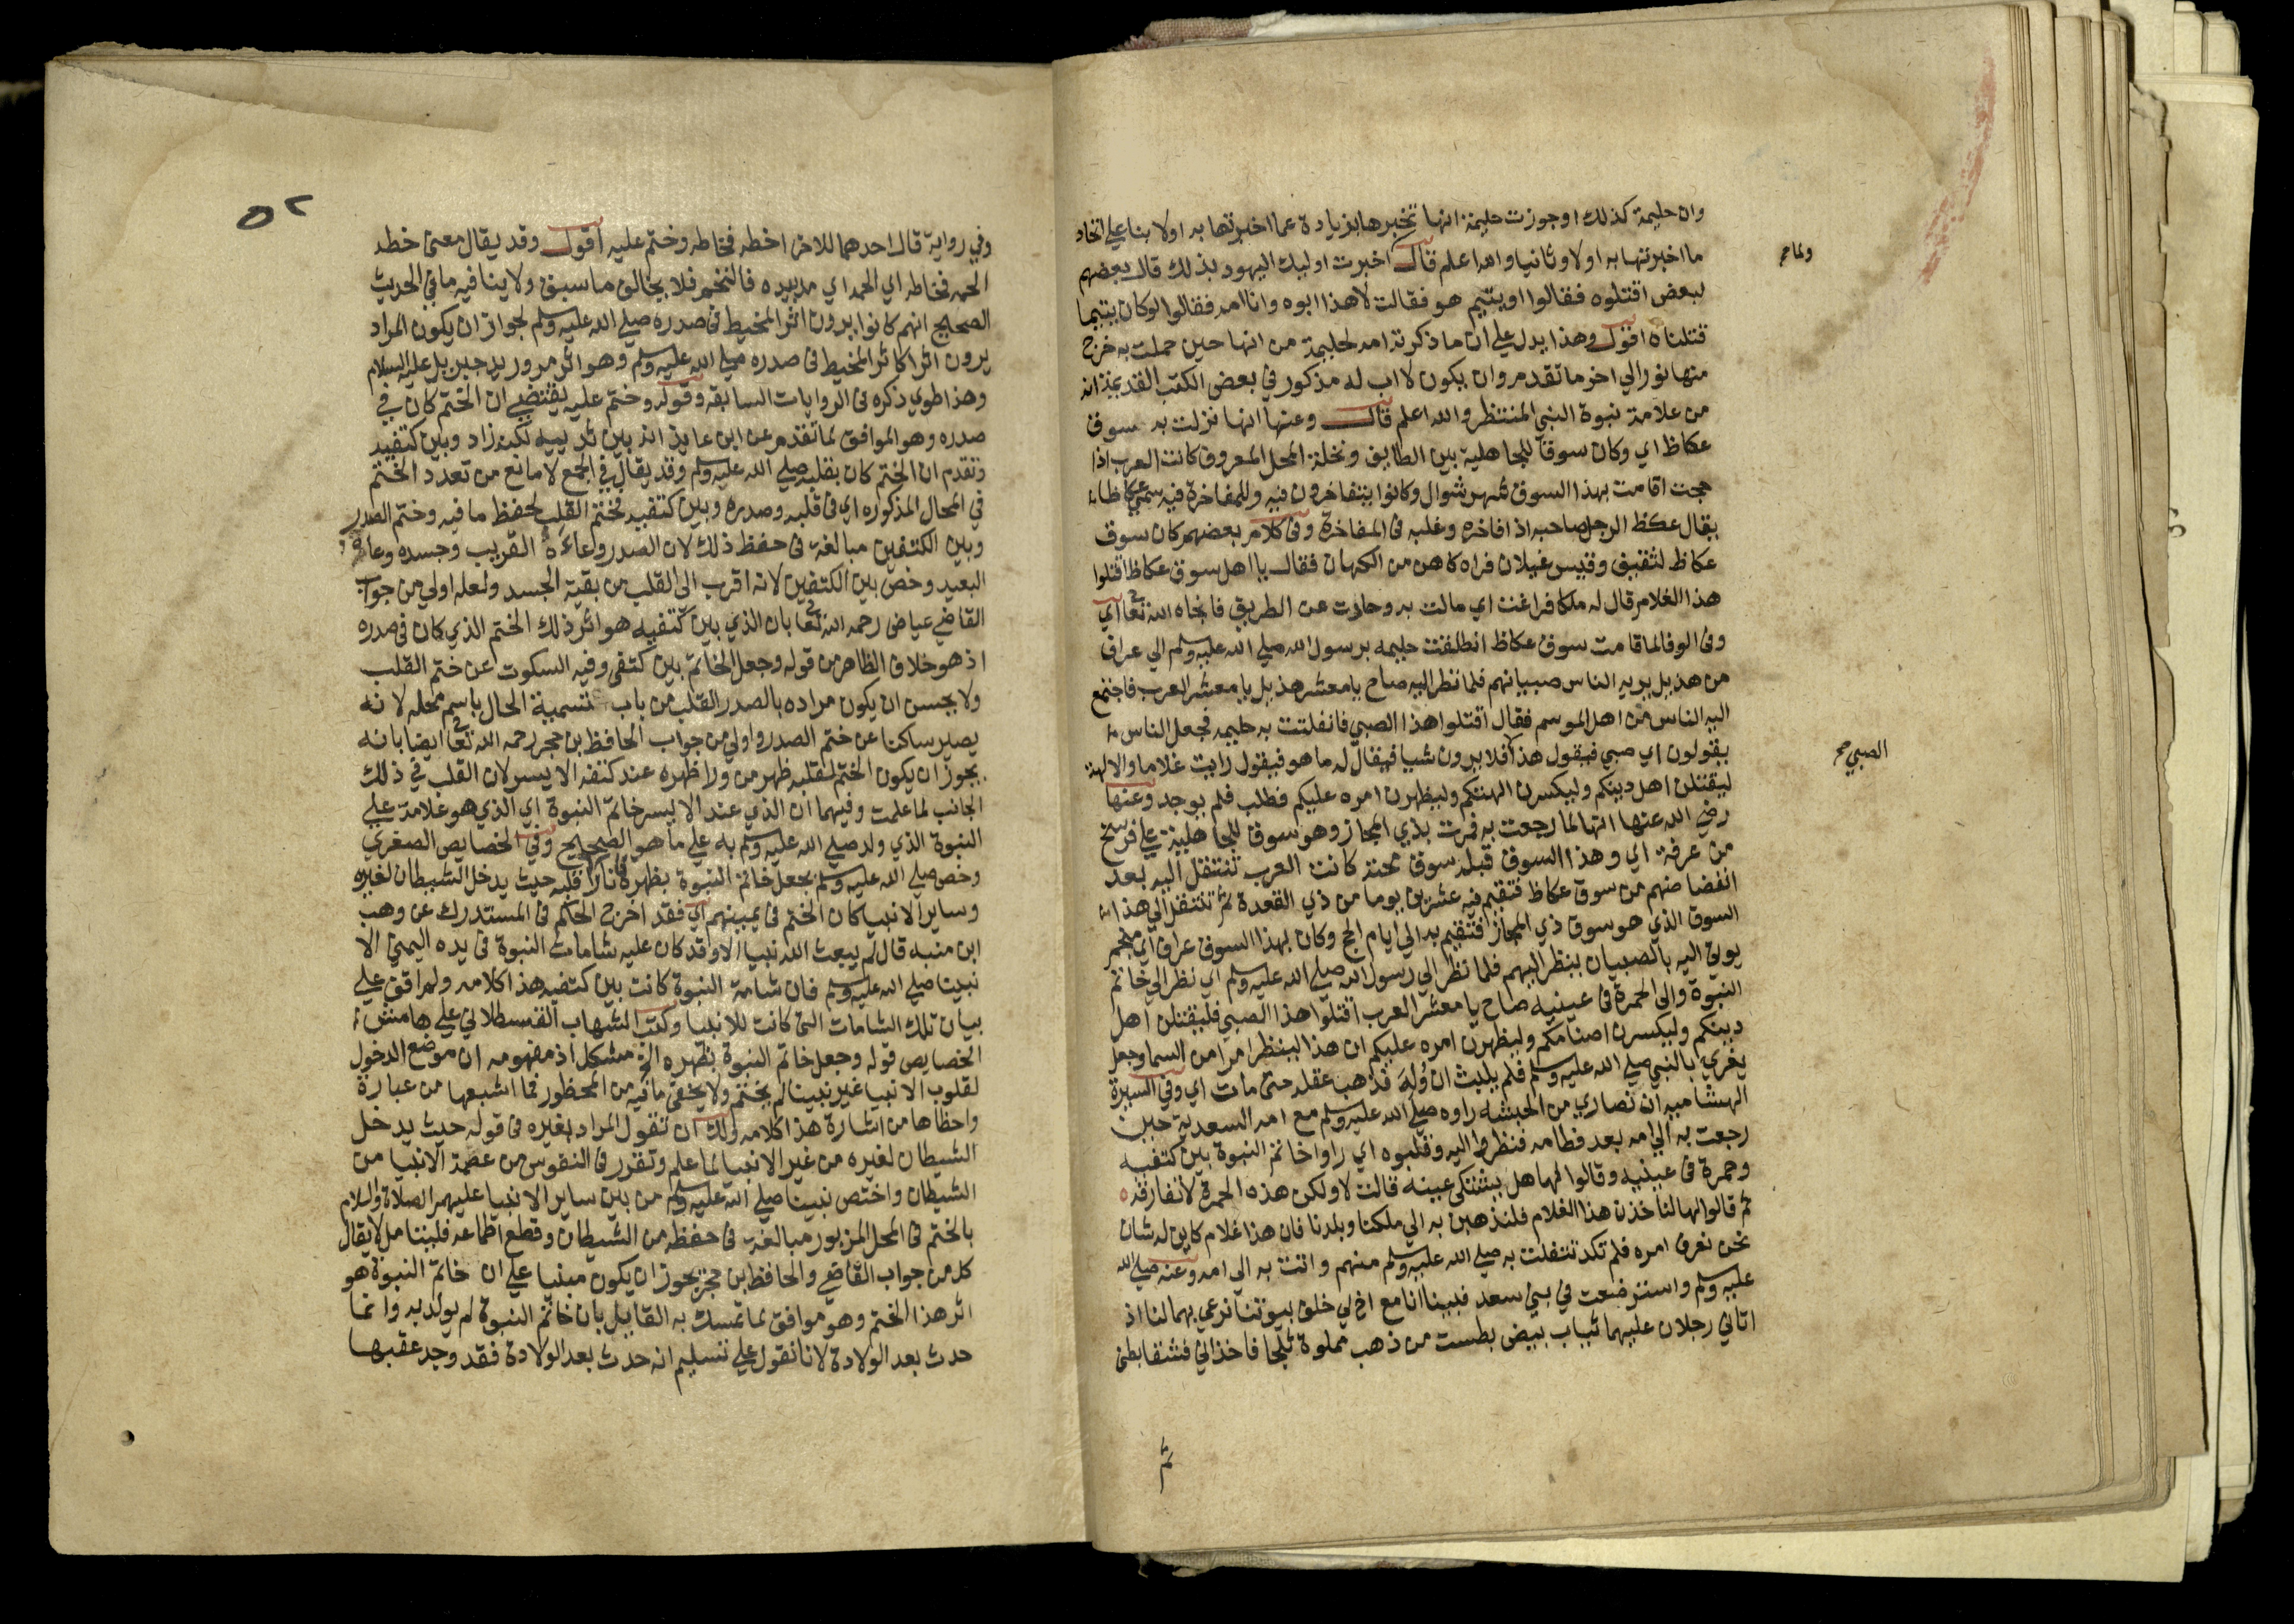 وان حليمة كذلك او جوزت حليمة انها تخبرها بزيادة عما اخبرتها به اولا بنا علي اتحاد
ما اخبرتها به اولا وثانيا والله اعلم قال اخبرت اوليك اليهود بذلك قال بعضهم
ولما صح
لبعض اقتلوه فقالوا او يتيم هو فقالت لا هذا ابوه وانا امه فقالوا لو كان يتيما
قتلناه اقول وهذا يدل علي ان ما ذكرته امه لحليمة من انها حين حملت به خرج
منها نور الي اخر ما تقدم وان يكون لا اب له مذكور في بعض الكتب القديمة انه
من علامة نبوة النبي المنتظر والله اعلم قال وعنها انها نزلت به سوق
عكاظ اي وكان سوقا للجاهلية بين الطايف ونخلة المحل المعروف كانت العرب اذا
حجت اقامت بهذا السوق شهر شوال وكانوا يتفاخرون فيه وللمفاخرة فيه سمي عكاظا
يقال عكظ الرجل صاحبه اذا فاخره وغلبه في المفاخرة وفي كلام بعضهم كان سوق
عكاظ لثقيف وقيس غيلان فراه كاهن من الكهان فقال يا اهل سوق عكاظ اقتلوا
هذا الغلام قال له ملكا فراغت اي مالت به وحادت عن الطريق فانجاه الله تعا اي
وفي الوفا لما قامت سوق عكاظ انطلقت حليمه برسول الله صلي الله عليه وسلم الي عراف
من هذيل يريه الناس صبيانهم فلما نظر اليه صاح يا معشر هذيل يا معشر العرب فاجتمع
اليه الناس من اهل الموسم فقال اقتلوا هذا الصبي فانفلتت به حليمه فجعل الناس
يقولون اي صبي فيقول هذا فلا يرون شيا فيقال له ما هو فيقول رايت غلاما والالهة
الصبي صح
ليقتلن اهل دينكم وليكسرن الهتكم وليظهرن امره عليكم فطلب فلم يوجد وعنها
رضي الله عنها انها لما رجعت به فمرت بذي المجاز وهو سوق للجاهلية علي فرسخ
من عرفة اي وهذا السوق قبله سوق مجنة كانت العرب تنتقل اليه بعد
انفضاضهم من سوق عكاظ فتقيم فيه عشرين يوما من ذي القعدة ثم تنتقل الي هذا
السوق الذي هو سوق ذي المجاز فتقيم به الي ايام الحج وكان بهذا السوق عراف اي منجم
يوتي اليه بالصبيان ينظر اليهم فلما نظر الي رسول الله صلي الله عليه وسلم اي نظر الي خاتم
النبوة والي الحمرة في عينيه صاح يا معشر العرب اقتلوا هذا الصبي فليقتلن اهل
دينكم وليكسرن اصنامكم وليظهرن امره عليكم ان هذا لينظر امرا من السما وجعل
يغري بالنبي صلي الله عليه وسلم فلم يلبث ان وله فذهب عقله حتي مات اي وفي السيرة
الهشاميه ان نصاري من الحبشه راوه صلي الله عليه وسلم مع امه السعدية حين
رجعت به الي امه بعد فطامه فنظروا اليه وقلبوه اي راوا خاتم النبوة بين كتفيه
وحمرة في عينيه وقالوا لها هل يشتكي عينه قالت لا ولكن هذه الحمرة لا تفارقه
ثم قالوا لها لناخذن هذا الغلام فلنذهبن به الي ملكنا وبلدنا فان هذا غلام كاين له شان
نحن نعرف امره فلم تكد تنفلت به صلي الله عليه وسلم منهم واتت به الي امه وعنه صلي الله
عليه وسلم واسترضعت في بني سعد فبينا انا مع اخ لي خلف بيوتنا نرعي بهما لنا اذ
اتاني رجلان عليهما ثياب بيض بطست من ذهب مملوة ثلجا فاخذاني فشقا بطني
ثم
٥٢
وفي رواية قال احدهما للاخر اخطه فخاطه وختم عليه اقول وقد يقال معني خطه
الحمه فخاطه اي الحمه اي مر بيده فالتحم فلا يخالف ما سبق ولا ينافيه ما في الحديث
الصحيح انهم كانوا يرون اثر المخيط في صدره صلي الله عليه وسلم لجواز ان يكون المراد
يرون اثرا كاثر المخيط في صدره صلي الله عليه وسلم وهو اثر مرور يد جبريل عليه السلام
وهذا طوي ذكره في الروايات السابقة وقوله وختم عليه يقتضي ان الختم كان في
صدره وهو الموافق لما تقدم عن ابن عايذ انه بين ثدييه لكن زاد وبين كتفيه
وتقدم ان الختم كان بقلبه صلي الله عليه وسلم وقد يقال في الجمع لا مانع من تعدد الختم
في المحال المذكوره اي في قلبه وصدره وبين كتفيه فختم القلب لحفظ ما فيه وختم الصدر
وبين الكتفين مبالغة في حفظ ذلك لان الصدر وعاءه القريب وجسده وعاءه
البعيد وخص بين الكتفين لانه اقرب الي القلب من بقية الجسد ولعله اولي من جواب
القاضي عياض رحمه الله تعا بان الذي بين كتفيه هو اثر ذلك الختم الذي كان في صدره
اذ هو خلاف الظاهر من قوله وجعل الخاتم بين كتفي وفيه السكوت عن ختم القلب
ولا يحسن ان يكون مراده بالصدر القلب من باب تسمية الحال باسم محله لانه
يصير ساكتا عن ختم الصدر واولي من جواب الحافظ بن حجر رحمه الله تعا ايضا بانه
يجوز ان يكون الختم لقلبه ظهر من ورا ظهره عند كتفه الايسر لان القلب في ذلك
الجانب لما علمت وفيهما ان الذي عند الايسر خاتم النبوة اي الذي هو علامة علي
النبوة الذي ولد صلي الله عليه وسلم به علي ما هو الصحيح وفي الخصايص الصغري
وخص صلي الله عليه وسلم بجعل خاتم النبوة بظهره بازا قلبه حيث يدخل الشيطان لغيره
وساير الانبيا كان الختم في يمينهم اي فقد اخرج الحاكم في المستدرك عن وهب
ابن منبه قال لم يبعث الله نبيا الا وقد كان عليه شامات النبوة في يده اليمني الا
نبينا صلي الله عليه وسلم فان شامة النبوة كانت بين كتفيه هذا كلامه ولم اقف علي
بيان تلك الشامات التي كانت للانبيا وكتب الشهاب القسطلاني علي هامش
الخصايص قوله وجعل خاتم النبوة بظهره الخ مشكل اذ مفهومه ان موضع الدخول
لقلوب الانبيا غير نبينا لم يختم ولا يخفي ما فيه من المحظور فما اشبعها من عبارة
واخطاها من اشارة هذا كلامه ولك ان تقول المراد بغيره في قوله حيث يدخل
الشيطان لغيره من غير الانبيا لما علم وتقرر في النفوس من عصمة الانبيا من
الشيطان واختص نبينا صلي الله عليه وسلم من بين ساير الانبيا عليهم الصلاة والسلام
بالختم في المحل المزبور مبالغة في حفظه من الشيطان وقطع اطماعه فليتامل لا يقال
كل من جواب القاضي والحافظ بن حجر يجوز ان يكون مبنيا علي ان خاتم النبوة هو
اثر هذا الختم وهو موافق لما تمسك به القايل بان خاتم النبوة لم يولد به وانما
حدث بعد الولادة لانا نقول علي تسليم انه حدث بعد الولادة فقد وجد عقبها